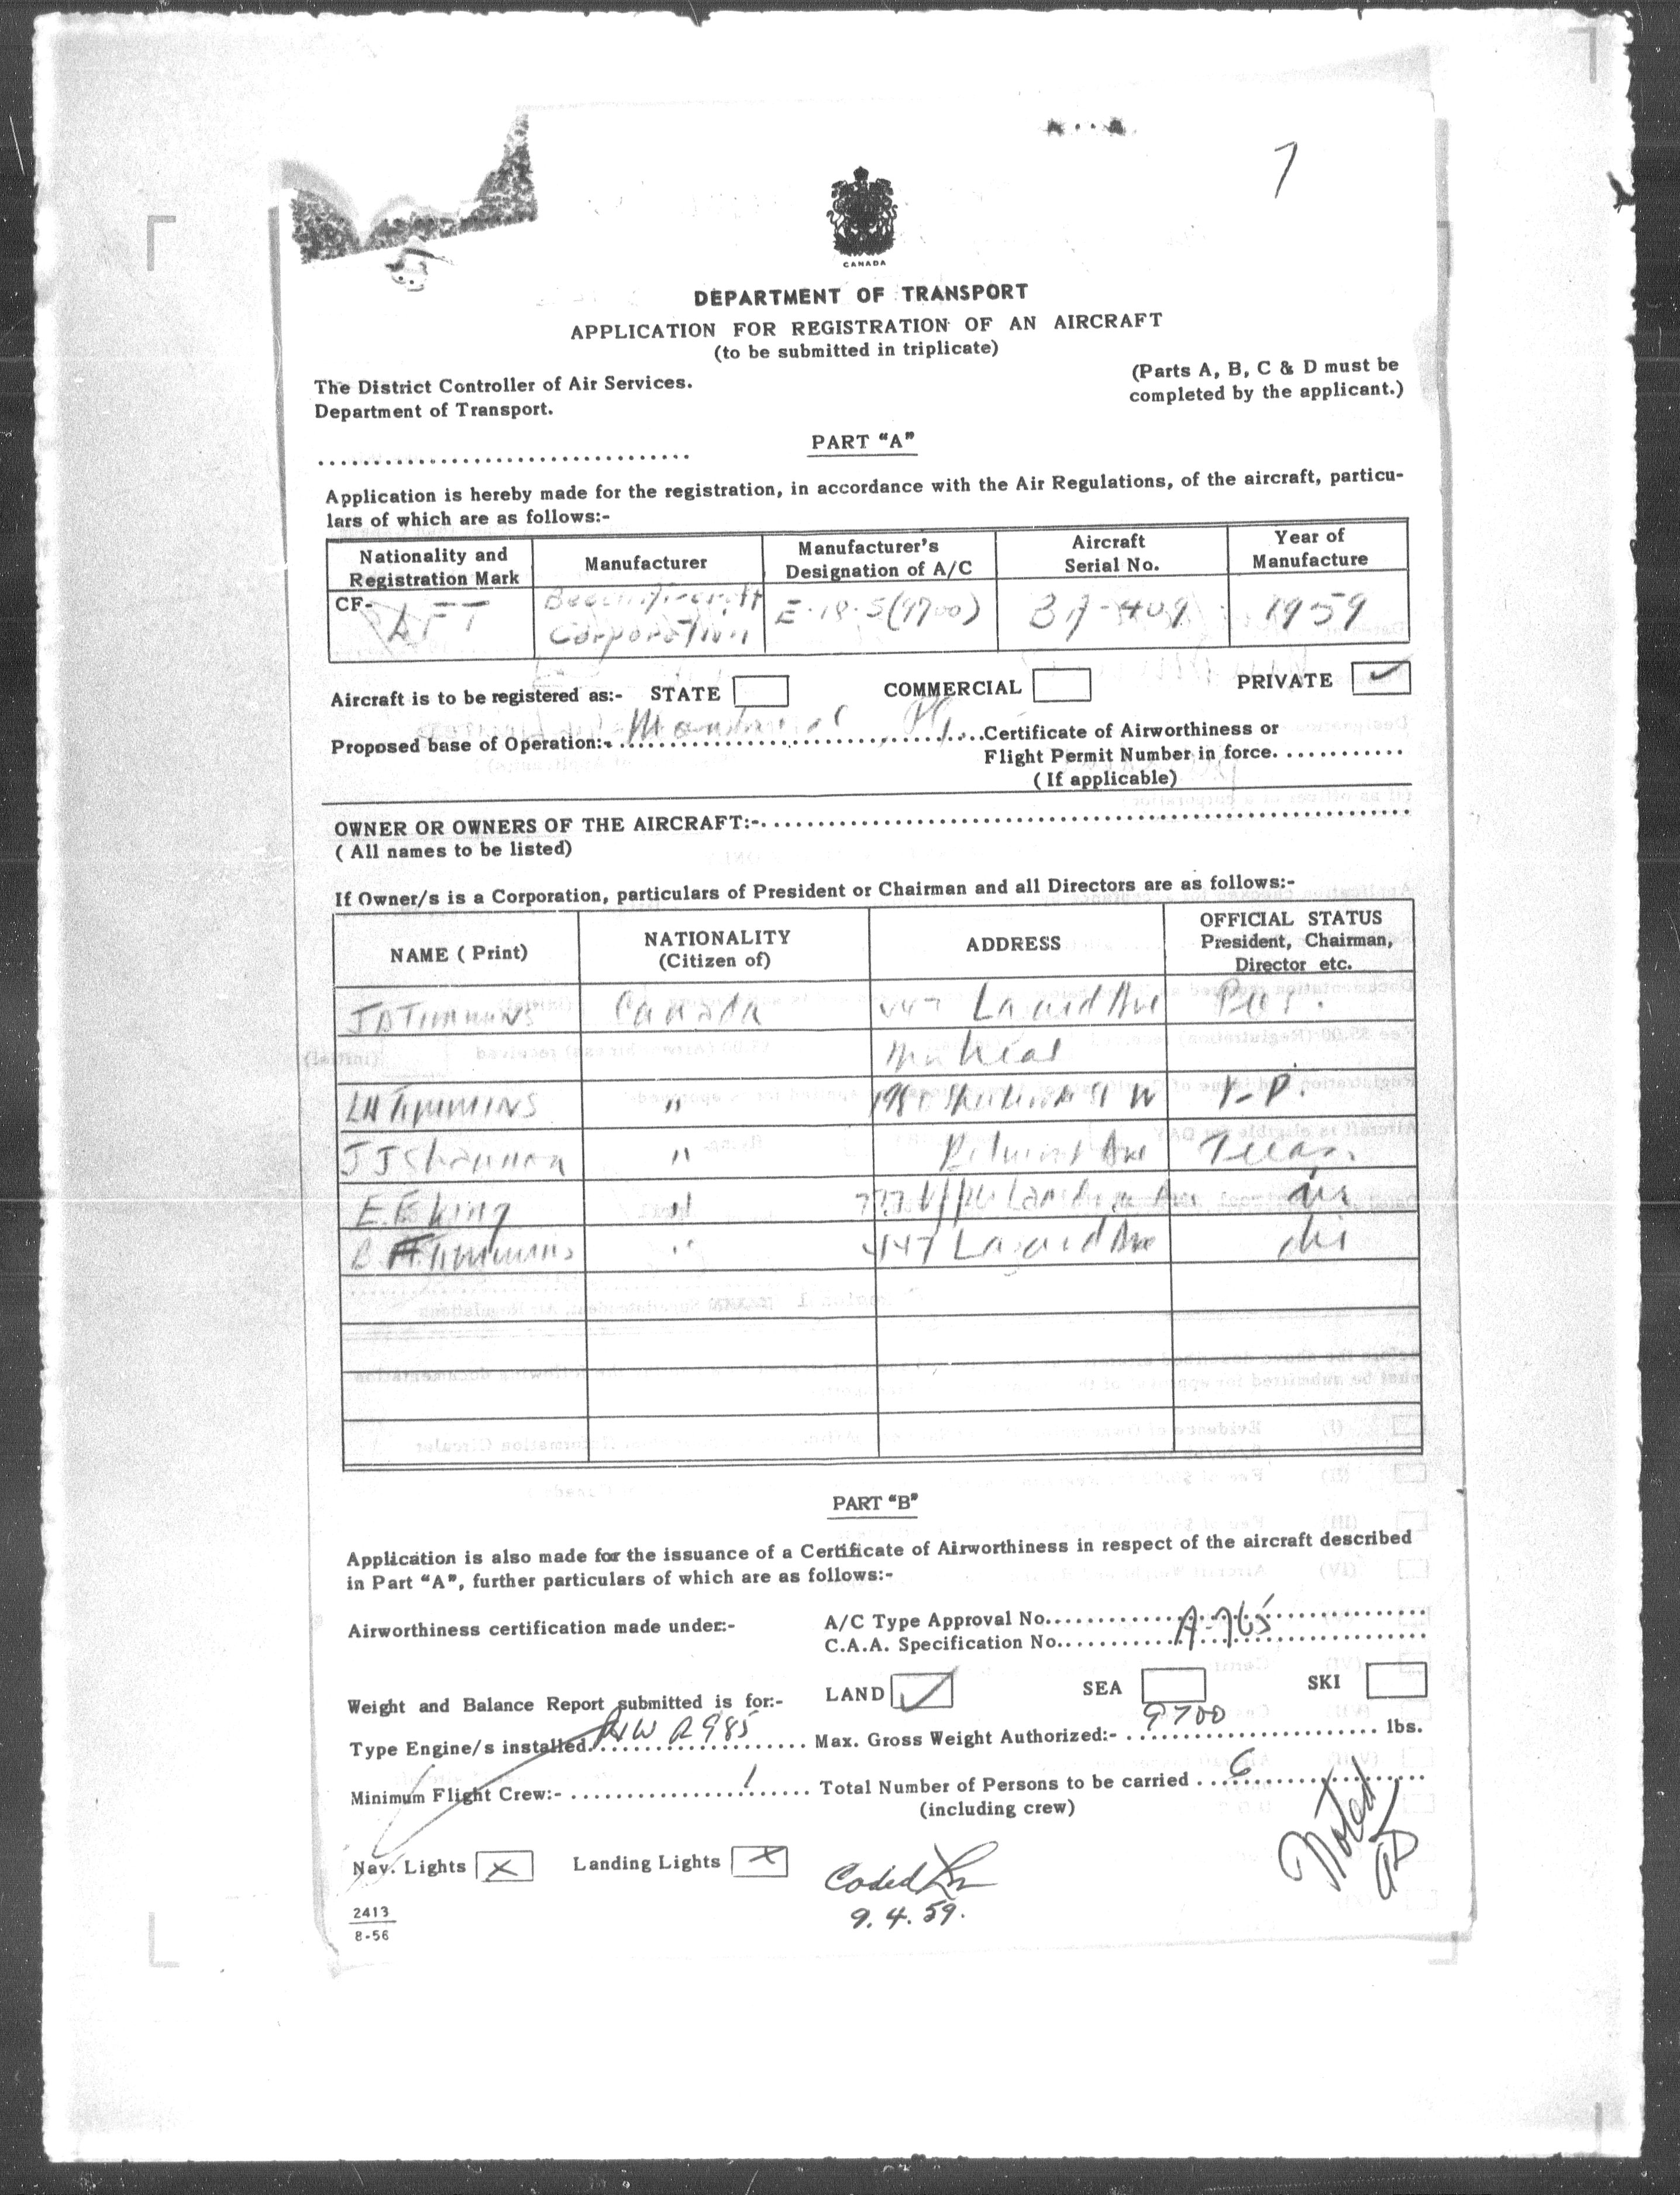 7
CANADA
DEPARTMENT OF TRANSPORT
APPLICATION FOR REGISTRATION OF AN AIRCRAFT
(to be submitted in triplicate)
The District Controller of Air Services.
Department of Transport.
(Parts A, B, C & D must be
completed by the applicant.)
PART "A"
Application is hereby made for the registration, in accordance with the Air Regulations, of the aircraft, particu-
lars of which are as follows:-
Nationality and Registration Mark Manufacturer Manufacturer's Designation of A/C Aircraft Serial No. Year of Manufacture
CF- LFT Beech Aircraft Corporation E-18-S(9700) BA-409 1959
Aircraft is to be registered as:- STATE COMMERCIAL PRIVATE ✓
Proposed base of Operation:- Montreal, PQ. Certificate of Airworthiness or
Flight Permit Number in force.
( If applicable)
OWNER OR OWNERS OF THE AIRCRAFT:-
( All names to be listed)
If Owner/s is a Corporation, particulars of President or Chairman and all Directors are as follows:-
NAME ( Print) NATIONALITY (Citizen of) ADDRESS OFFICIAL STATUS President, Chairman, Director etc.
J D TIMMINS Canada 447 Lazard Ave Pres.
Montreal
LH TIMMINS " St W V-P.
J J Shannon " Ave Treas.
E.E King " 777 Upper Lansdowne Ave dir
TIMMINS " 447 Lazard Ave dir
PART "B"
Application is also made for the issuance of a Certificate of Airworthiness in respect of the aircraft described
in Part "A", further particulars of which are as follows:-
Airworthiness certification made under:- A/C Type Approval No.
C.A.A. Specification No. A-765
Weight and Balance Report submitted is for:- LAND ✓ SEA SKI
Type Engine/s installed. P/W R985 Max. Gross Weight Authorized:- 9700 lbs.
Minimum Flight Crew:- 1 Total Number of Persons to be carried 6
(including crew)
Nav. Lights X Landing Lights X
Coded
9.4.59.
Noted
2413
8-56